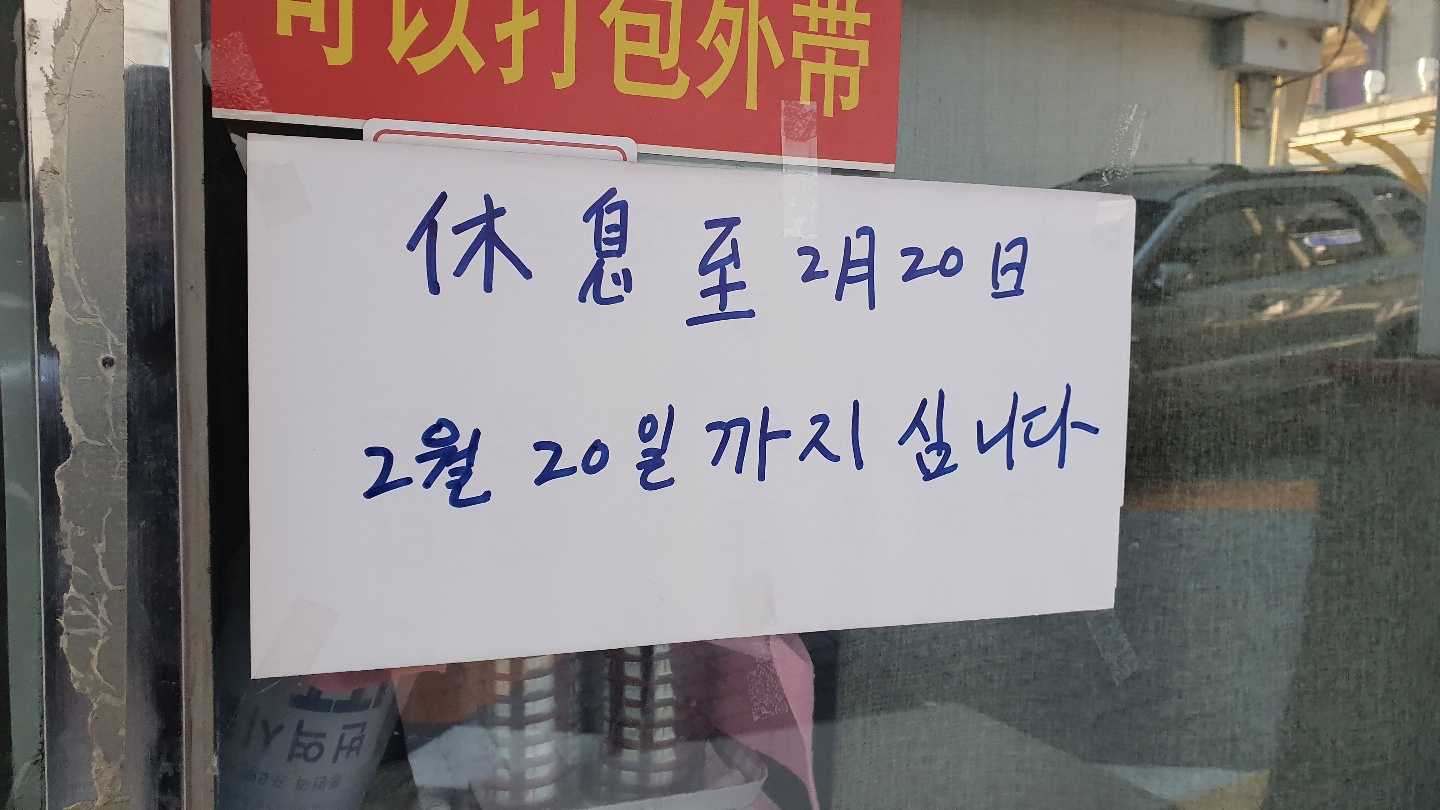 可以打包外带
休息至2月20日
2월 20일 까지 십니다